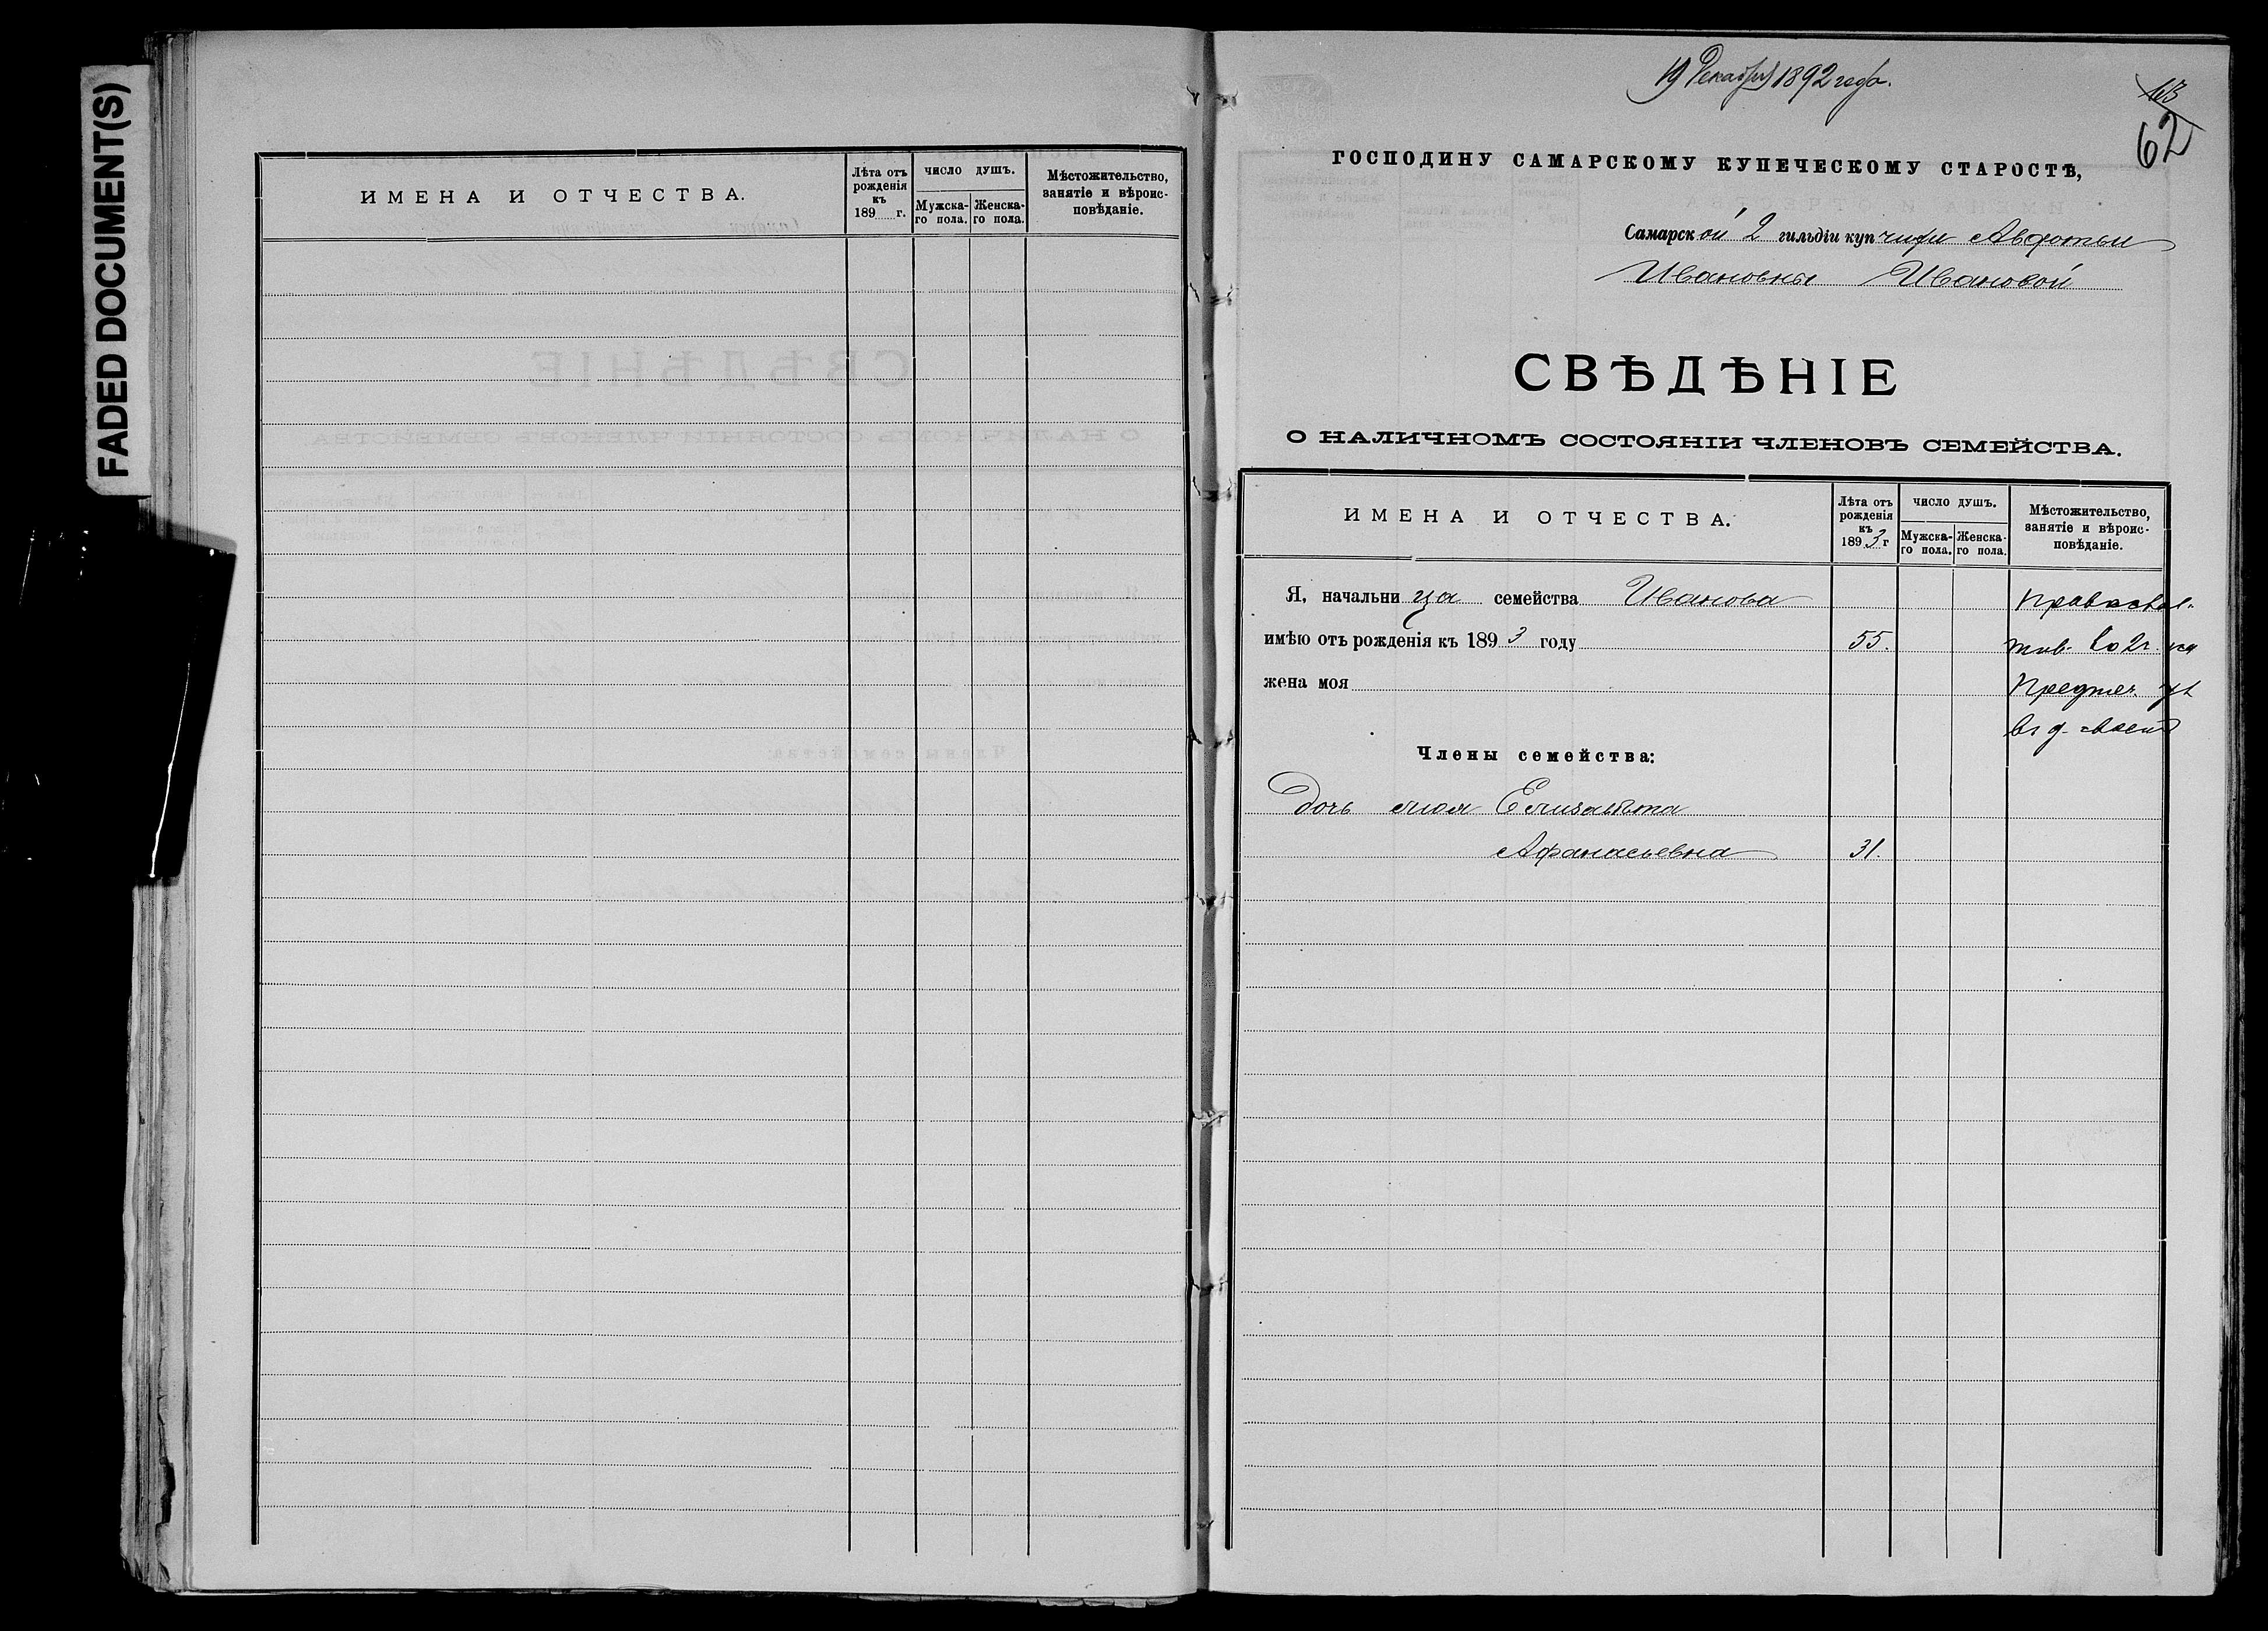 FADED DOCUMENT(S)
ИМЕНА И ОТЧЕСТВА.
Лѣта отъ рожденія къ 189 г.
ЧИСЛО ДУШЪ.
Мужска-го пола.
Женска-го пола.
Мѣстожительство, занятіе и вѣроис-повѣданіе.
19 Декабря 1892 года.
63
62
ГОСПОДИНУ САМАРСКОМУ КУПЕЧЕСКОМУ СТАРОСТѢ,
Самарской 2 гильдіи купчихи Авдотьи
Ивановны Ивановой
СВѢДѢНІЕ
О НАЛИЧНОМЪ СОСТОЯНІИ ЧЛЕНОВЪ СЕМЕЙСТВА.
ИМЕНА И ОТЧЕСТВА.
Лѣта отъ рожденія къ 1893 г
ЧИСЛО ДУШЪ.
Мужска-го пола.
Женска-го пола.
Мѣстожительство, занятіе и вѣроис-повѣданіе.
Я, начальница семейства Иванова
Православ.
имѣю отъ рожденія къ 1893 году 55.
жив. на
жена моя
Предтеч. ул
въ д.
Члены семейства:
Дочь моя Елизавѣта
Афанасьевна 31.